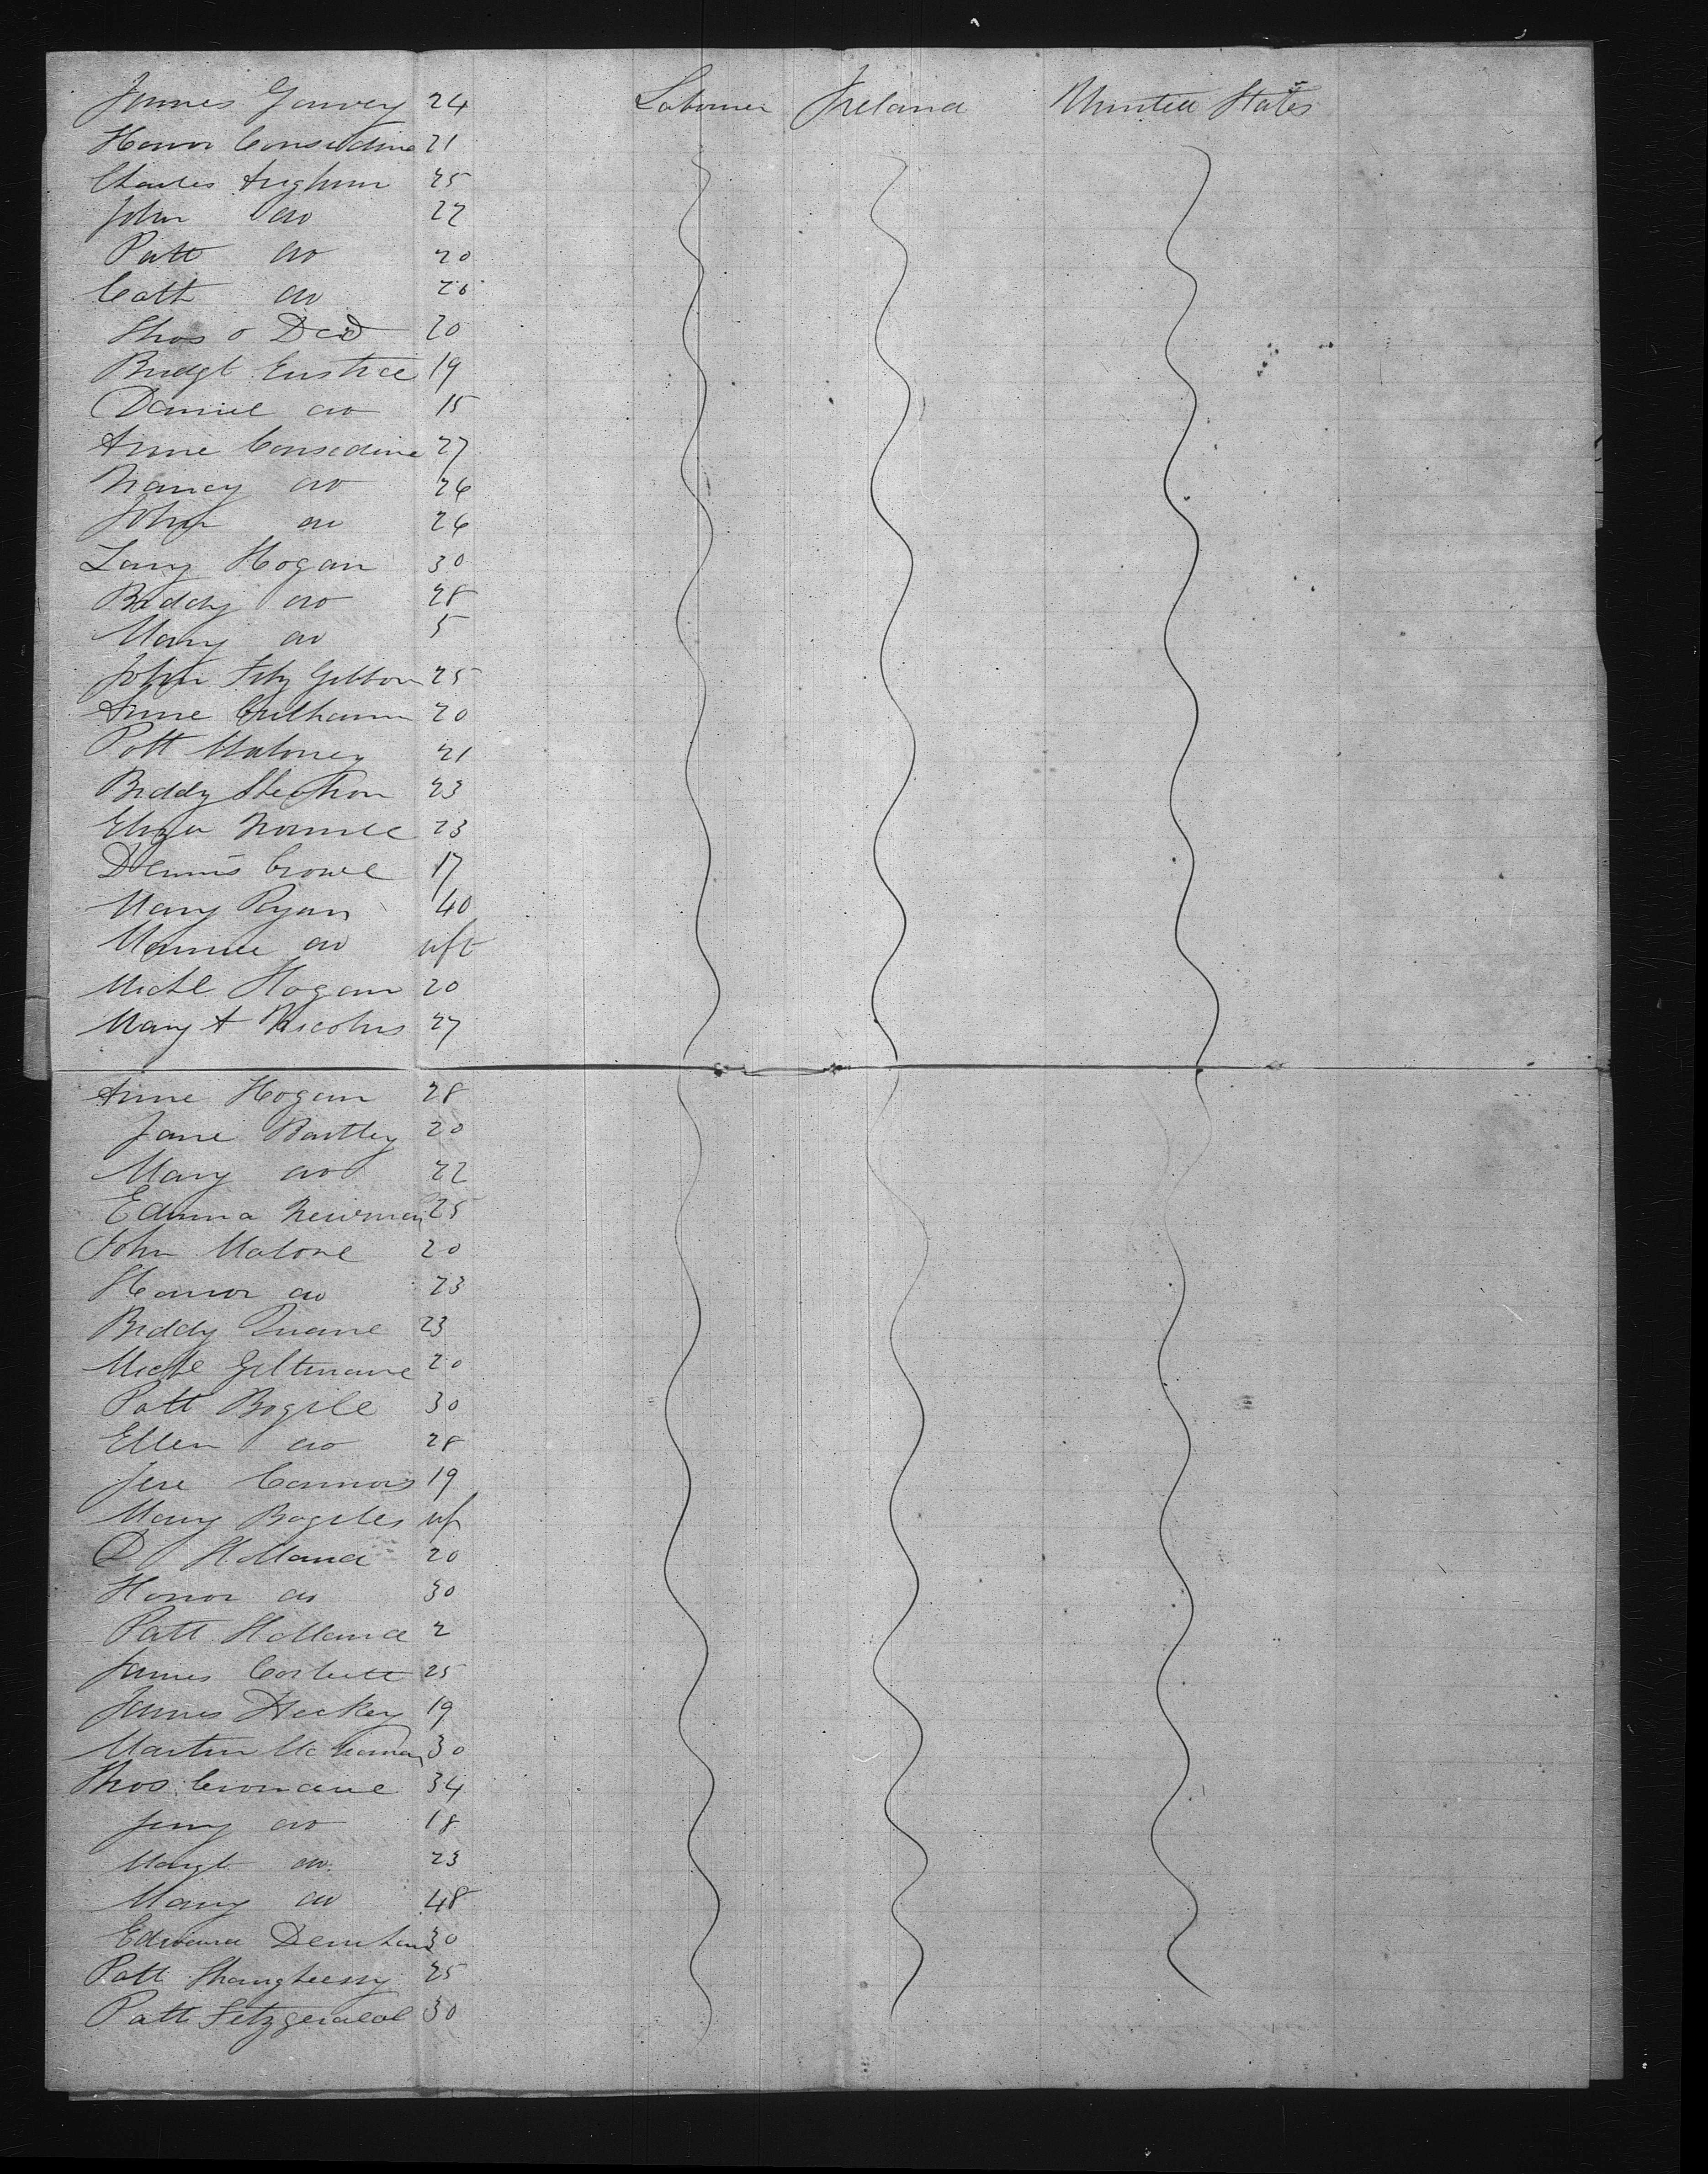 James Garvey 24 Labourer Ireland United States
Honor Considine 21
Charles 25
John do 22
Patt do 20
Cath do 20
Thos o Dea 20
Bridgt Eustice 19
Daniel do 15
Anne Considine 27
Nancy do 26
John do 26
Lany Hogan 30
Biddy do 28
Mary do 5
John Fitz Gibbon 25
Anne 20
Patt Maloney 21
Biddy 23
Eliza 23
Dennis Crowe 17
Mary Ryan 40
do inft
Michl Hogan 20
Mary A Nicolus 27
Anne Hogan 28
Jane Bartley 20
Mary do 22
Edmund Newman 25
John Malone 20
Honor do 23
Biddy Duane 23
Michl Giltinane 20
Patt Bogile 30
Ellen do 28
Jere Connors 19
Mary Bogiles inf
D Holland 20
Honor do 30
Patt Holland 2
James Corbett 25
James Hickey 19
Martin 30
Thos Cromane 34
Jimy do 18
Margt do 23
Mary do 48
Edward 30
Patt Shaughessy 25
Patt Fitzgerald 30